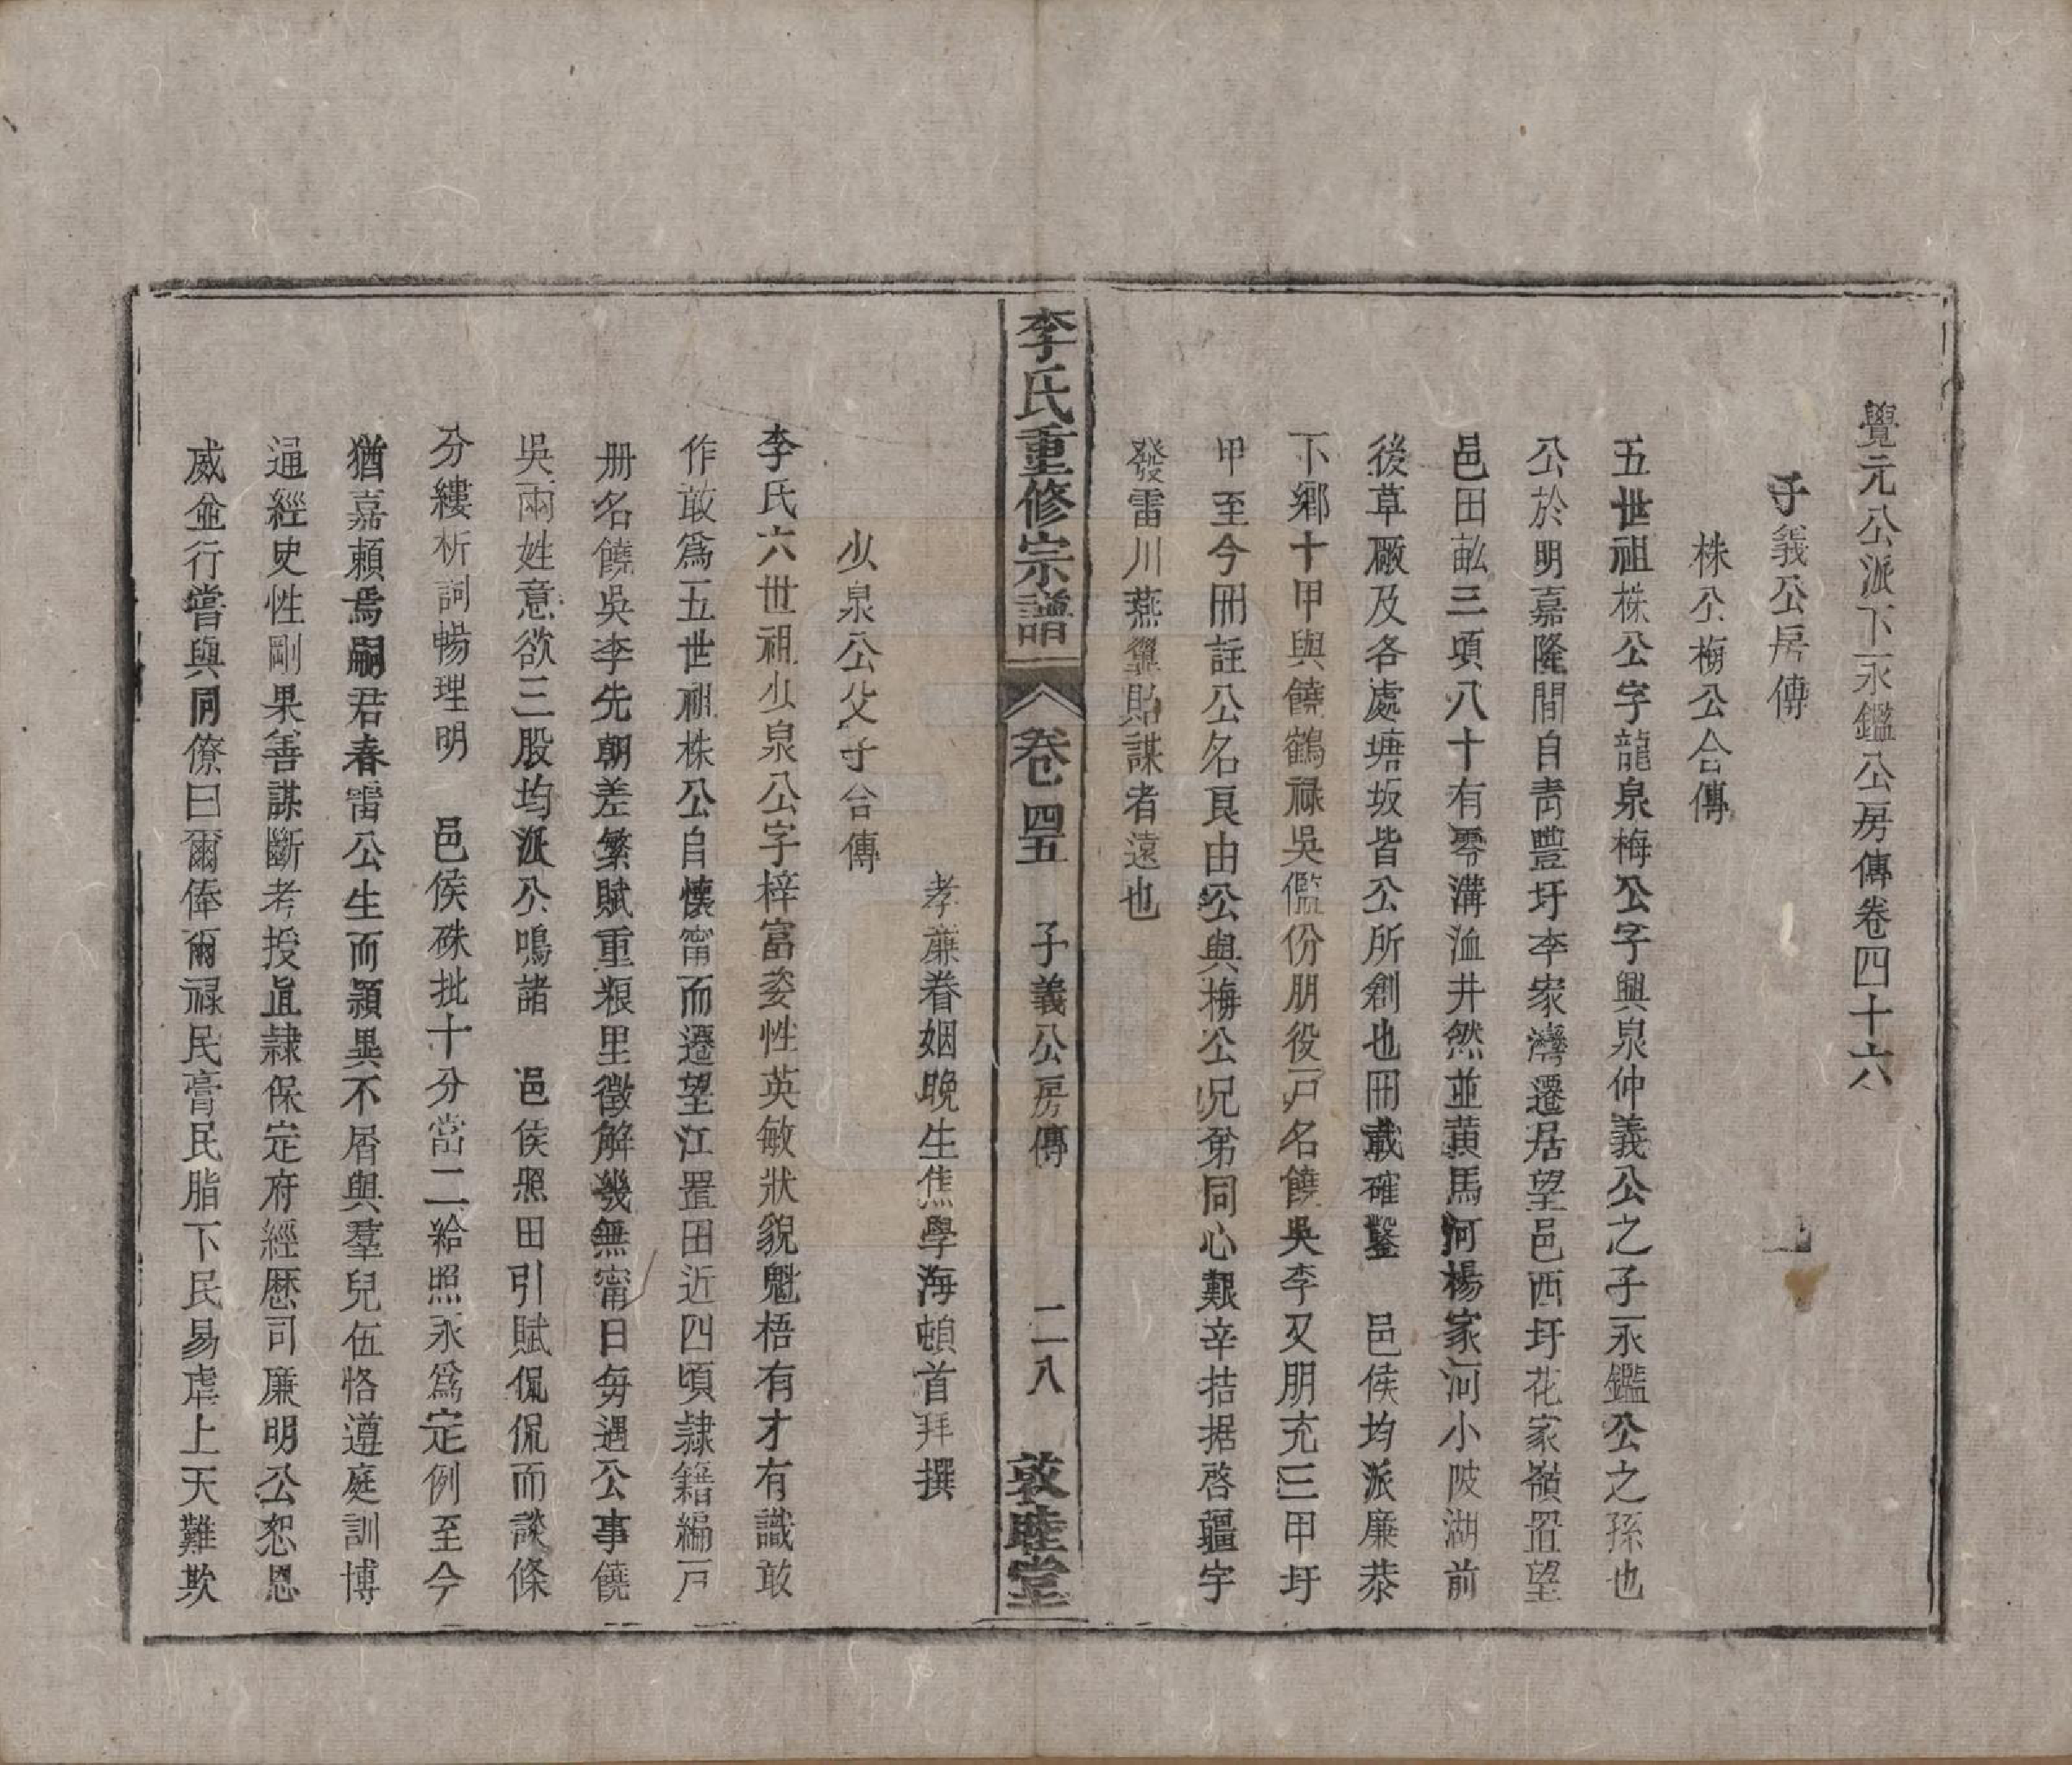 覺元公派下永鑑公房傳卷四十六
子義公房傳
株公梅公合傳
五世祖株公字龍泉梅公字興泉仲義公之子永鑑公之孫也
公於明嘉隆間自青豐圩李家灣遷居望邑西圩花家嶺置望
邑田畝三頃八十有零溝洫井然並黄馬河楊家河小陂湖前
後草廠及各處塘坂皆公所創也冊載確鑿 邑侯均派廉恭
下鄉十甲與饒鶴祿吳儖份朋役戸名饒吳李又朋充三甲圩
甲至今冊註公名良由公與梅公兄弟同心艱辛拮据啓疆宇
發雷川燕翼貽謀者遠也
李氏重修宗譜 卷四五 子義公房傳 二八 敦睦堂
孝廉眷姻晚生焦學海頓首拜撰
少泉公父子合傳
李氏六世祖少泉公字梓富姿性英敏狀貌魁梧有才有識敢
作敢爲五世祖株公自懷甯而遷望江置田近四頃隷籍編戸
册名饒吳李先朝差繁賦重粮里徵解幾無甯日每遇公事饒
吳兩姓意欲三股均派公鳴諸 邑侯照田引賦侃侃而談條
分縷析詞暢理明 邑侯硃批十分當二給照永爲定例至今
猶嘉頼焉嗣君春雷公生而穎異不屑與羣兒伍恪遵庭訓博
通經史性剛果善謀斷考授直隷保定府經歷司廉明公恕恩
威並行嘗與同僚曰爾俸爾祿民膏民脂下民易虐上天難欺